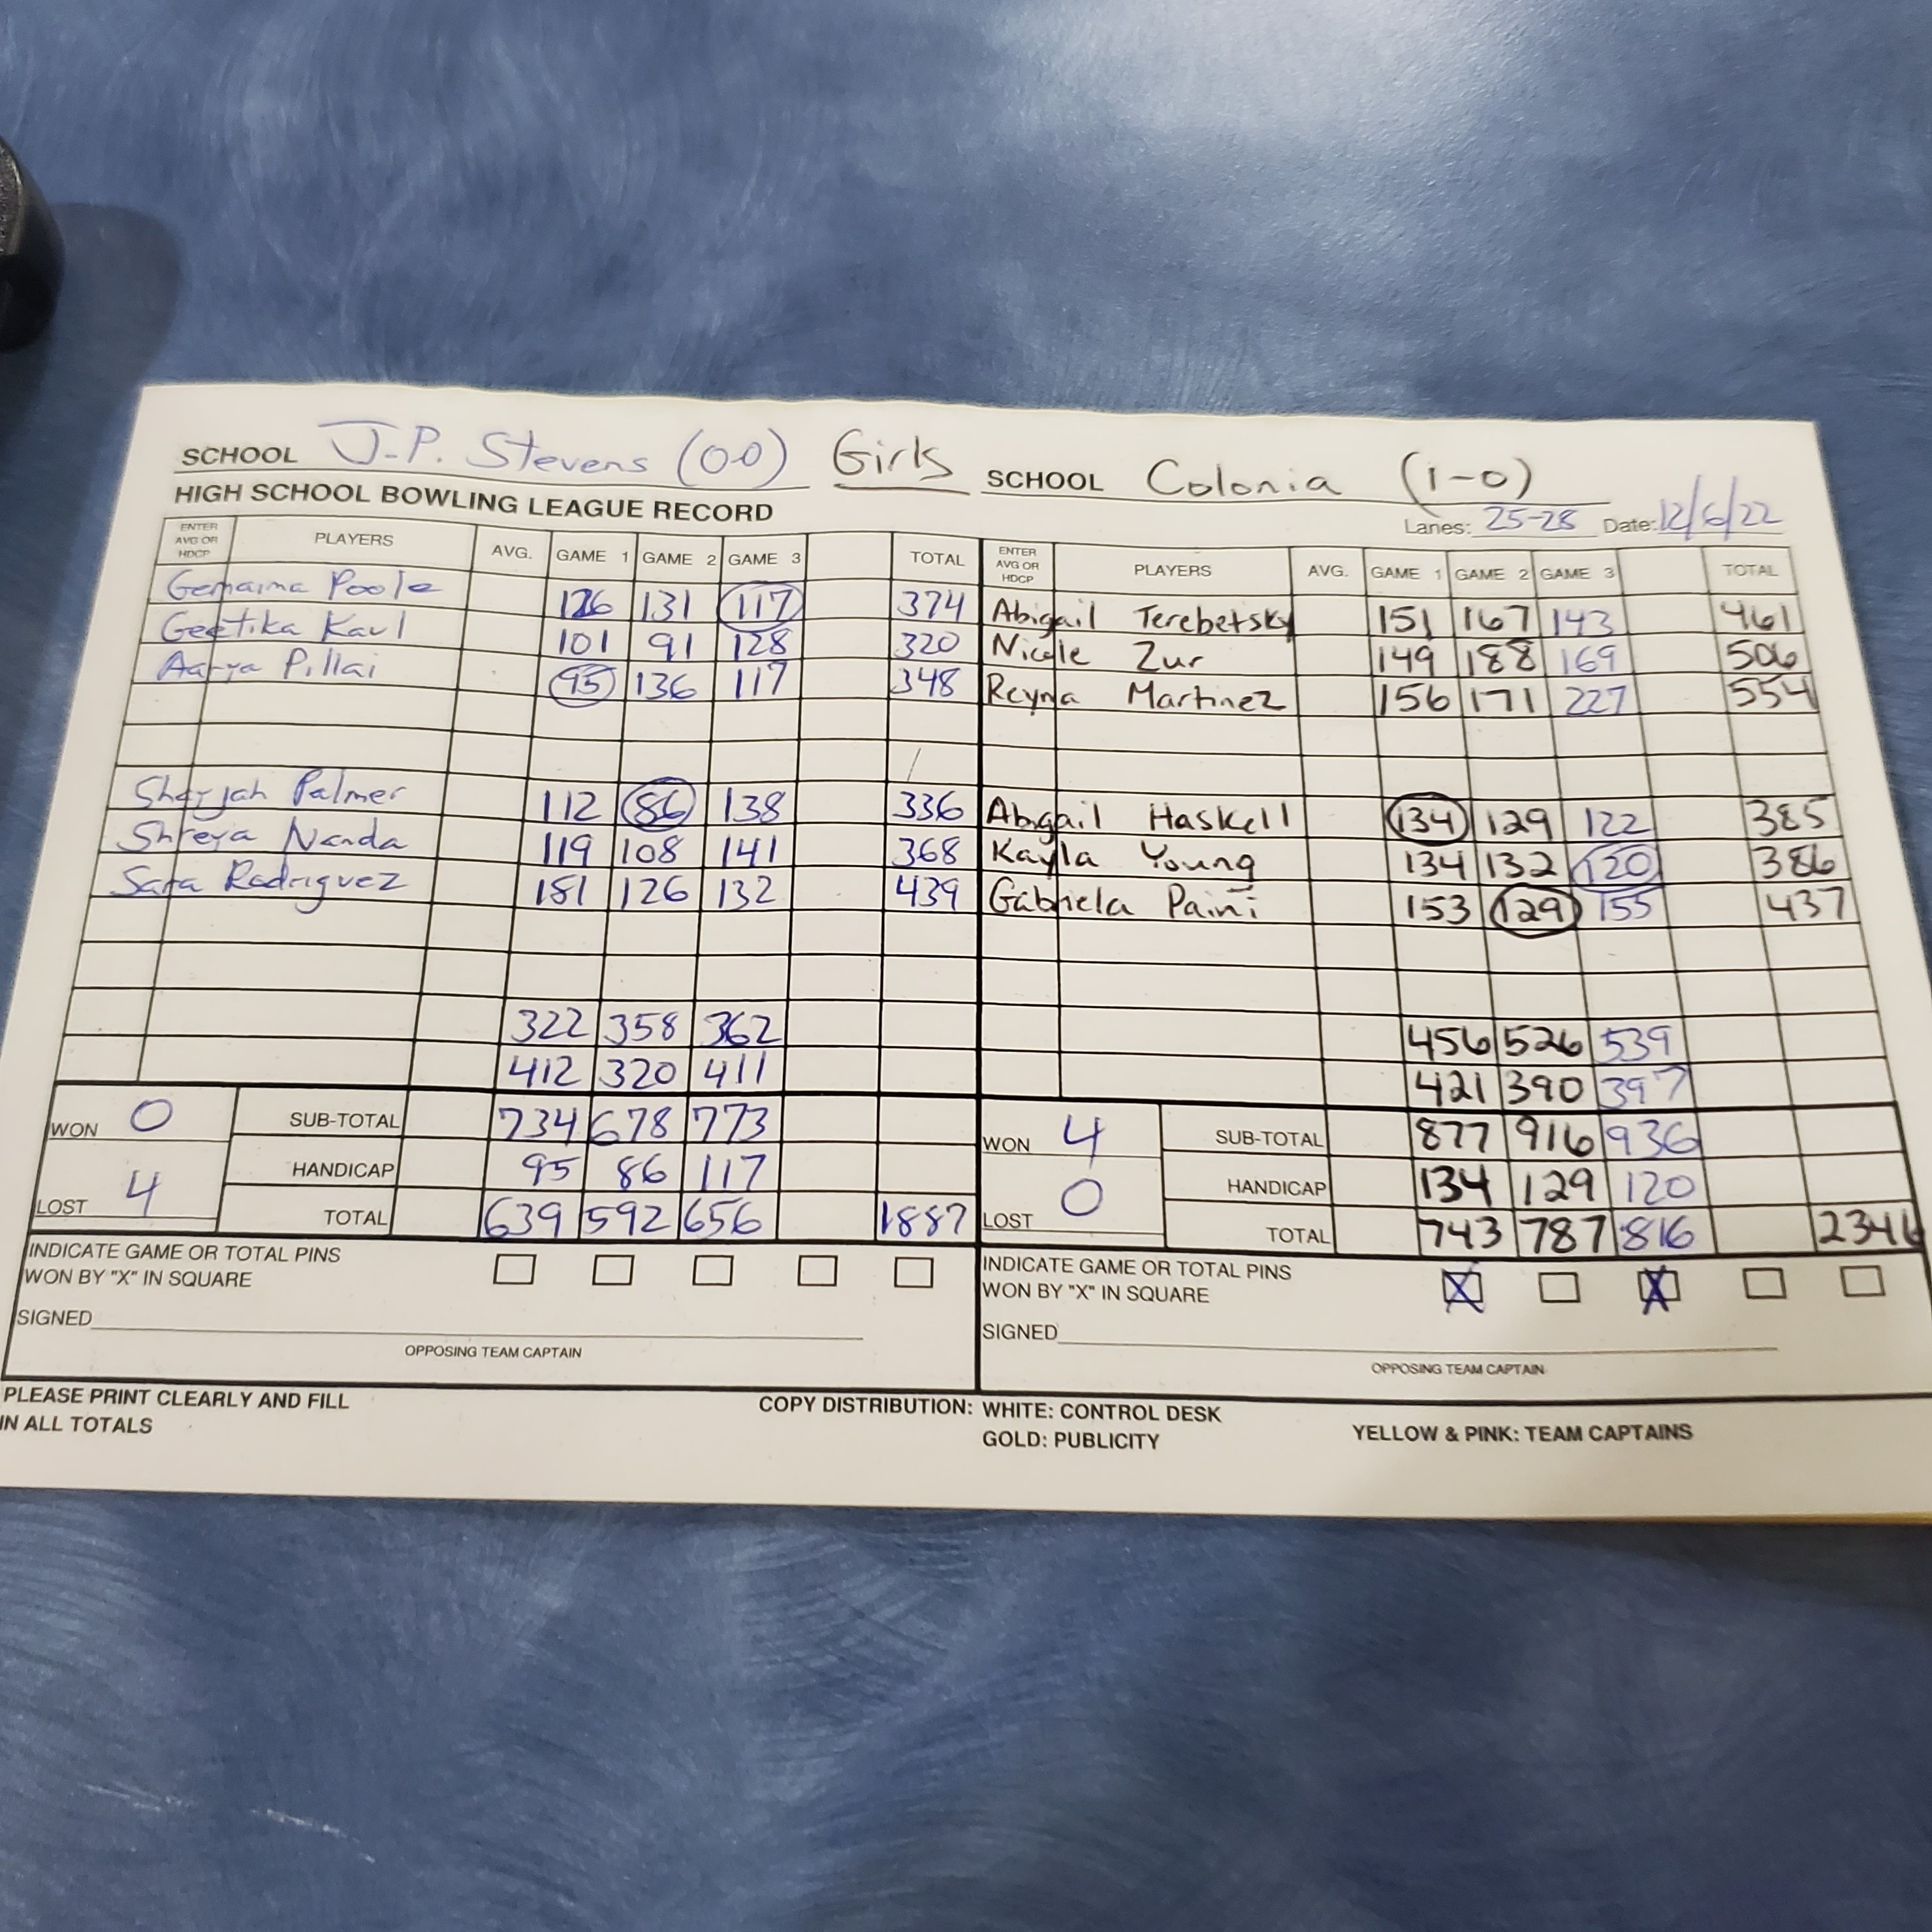 SCHOOL J.P. Stevens (0-0) Girls SCHOOL Colonia (1-0)
HIGH SCHOOL BOWLING LEAGUE RECORD Lanes: 25-28 Date: 12/6/22
ENTER AVG OR HDCP PLAYERS AVG. GAME 1 GAME 2 GAME 3 TOTAL ENTER AVG OR HDCP PLAYERS AVG. GAME 1 GAME 2 GAME 3 TOTAL
Gemaima Poole 126 131 117 374 Abigail Terebetsky 151 167 143 461
Geetika Kaul 101 91 128 320 Nicole Zur 149 188 169 506
Aarya Pillai 95 136 117 348 Reyna Martinez 156 171 227 554
Palmer 112 86 138 336 Abigail Haskell 134 129 122 385
Shreya Nanda 119 108 141 368 Kayla Young 134 132 120 386
Sara Rodriguez 181 126 132 439 Gabriela Paini 153 129 155 437
322 358 362 456 526 539
412 320 411 421 390 397
WON 0 SUB-TOTAL 734 678 773 WON 4 SUB-TOTAL 877 916 936
HANDICAP 95 86 117 HANDICAP 134 129 120
LOST 4 TOTAL 639 592 656 1887 LOST 0 TOTAL 743 787 816 2346
INDICATE GAME OR TOTAL PINS INDICATE GAME OR TOTAL PINS
WON BY "X" IN SQUARE WON BY "X" IN SQUARE X X
SIGNED SIGNED
OPPOSING TEAM CAPTAIN OPPOSING TEAM CAPTAIN
PLEASE PRINT CLEARLY AND FILL COPY DISTRIBUTION: WHITE: CONTROL DESK
IN ALL TOTALS GOLD: PUBLICITY YELLOW & PINK: TEAM CAPTAINS